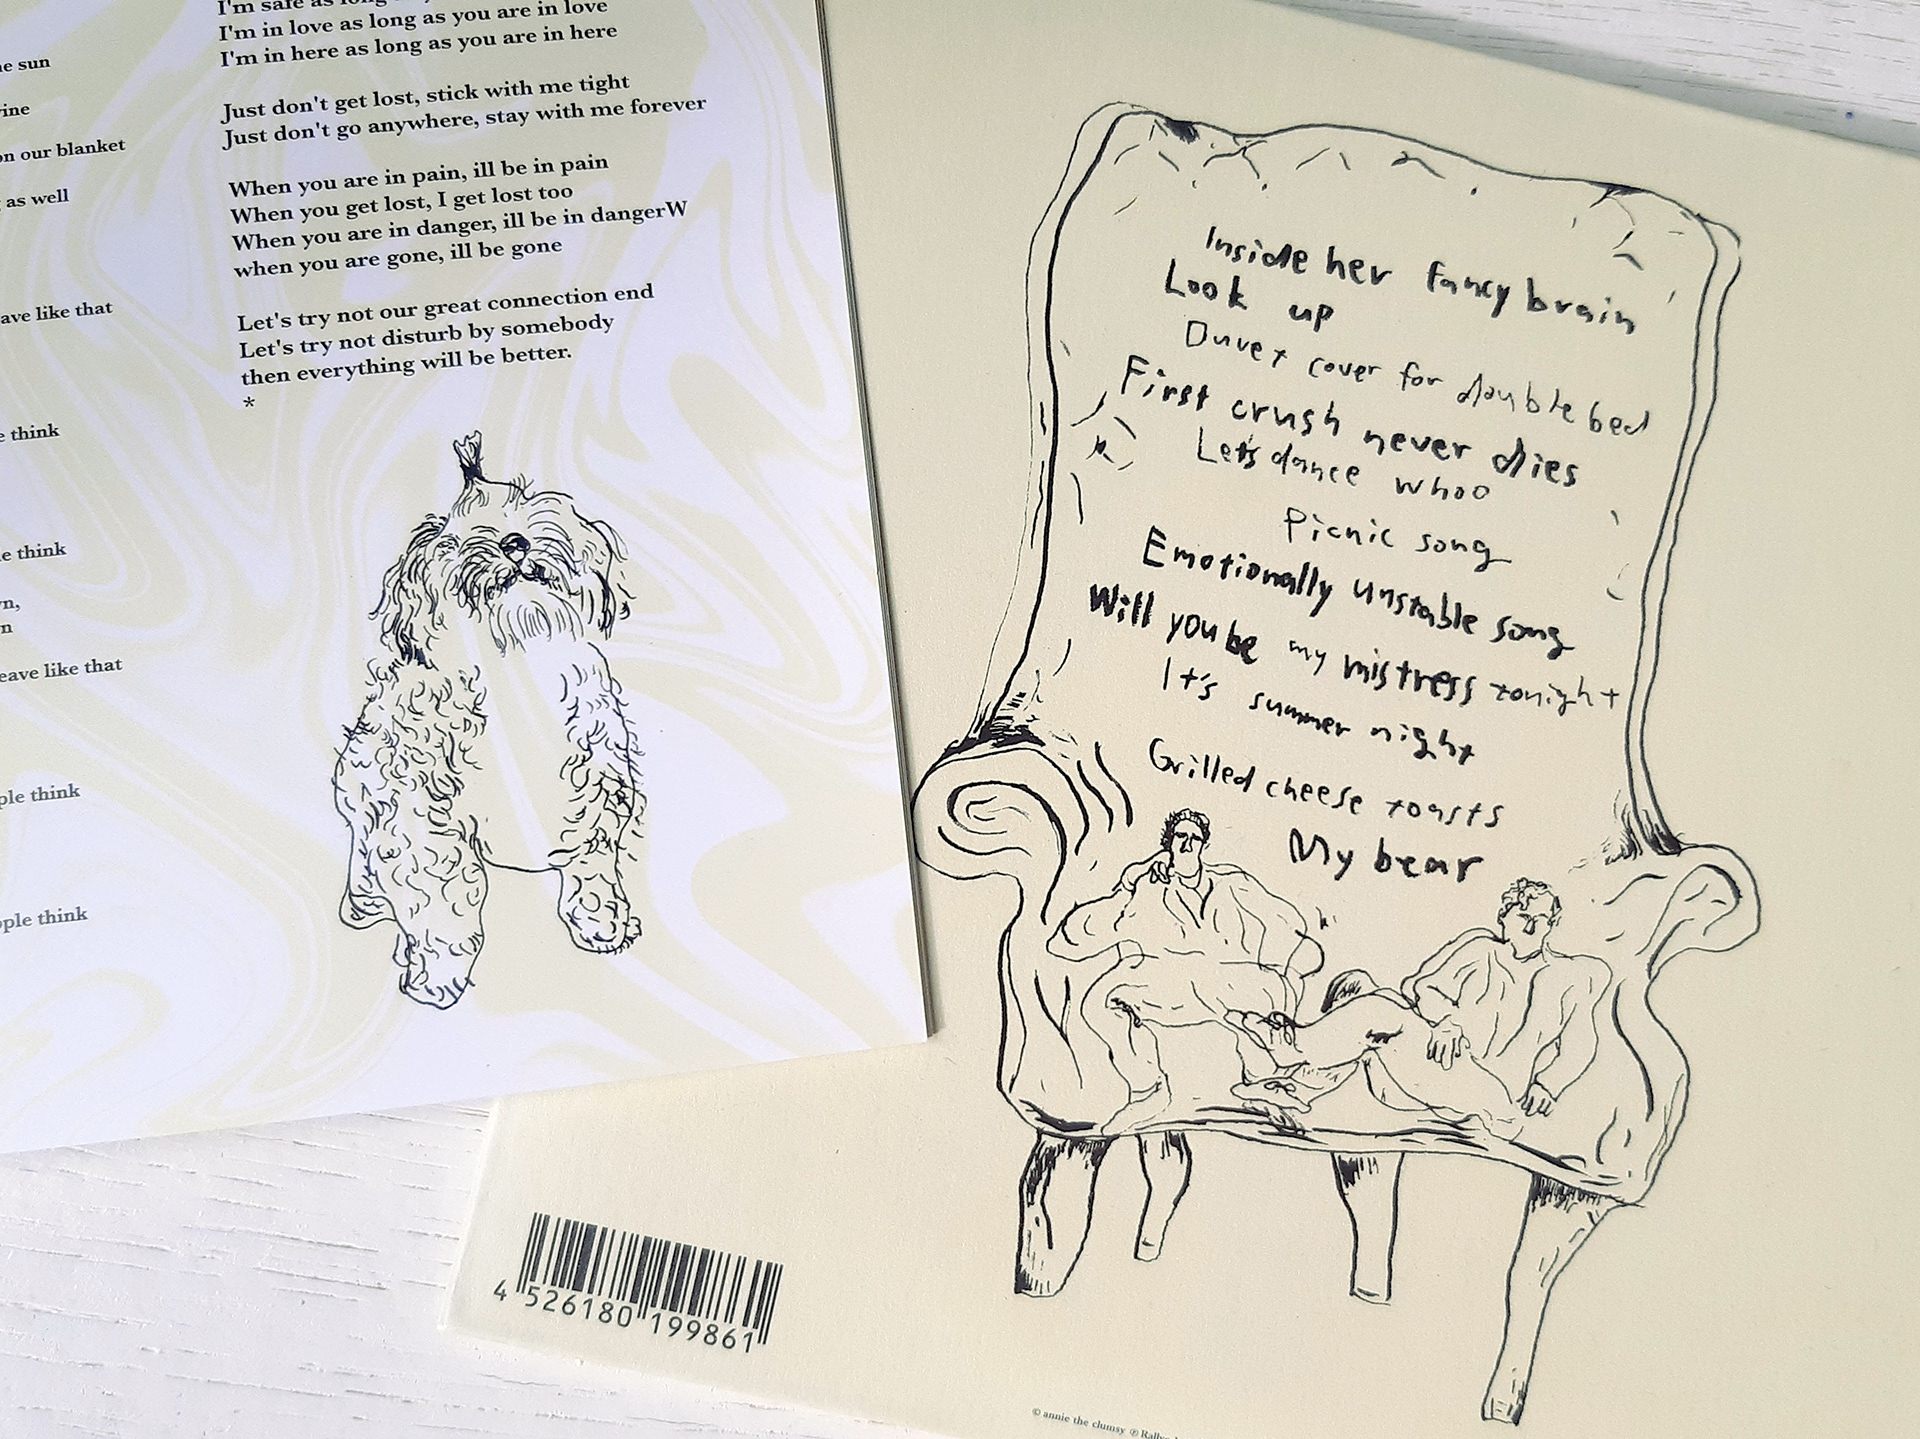 I'm safe as long
I'm in love as long as you are in love
I'm in here as long as you are in here
Just don't get lost, stick with me tight
Just don't go anywhere, stay with me forever
When you are in pain, ill be in pain
When you get lost, I get lost too
When you are in danger, ill be in dangerW
when you are gone, ill be gone
Let's try not our great connection end
Let's try not disturb by somebody
then everything will be better.
*
sun
on our blanket
as well
like that
think
think
like that
think
think
Inside her fancy brain
Look up
Duvet cover for double bed
First crush never dies
Let's dance whoo
Picnic song
Emotionally unstable song
Will you be my mistress tonight
It's summer night
Grilled cheese toasts
My bear
4 526180 199861
© annie the clumsy ℗